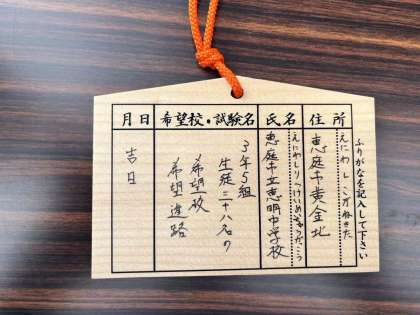 ふりがなを記入して下さい
住所
えにわし こがねきた
恵庭市黄金北
氏名
えにわしりつけいめいちゅうがっこう
恵庭市立恵明中学校
希望校・試験名
3年5組
生徒二十八名の
希望校
希望進路
月日
吉日